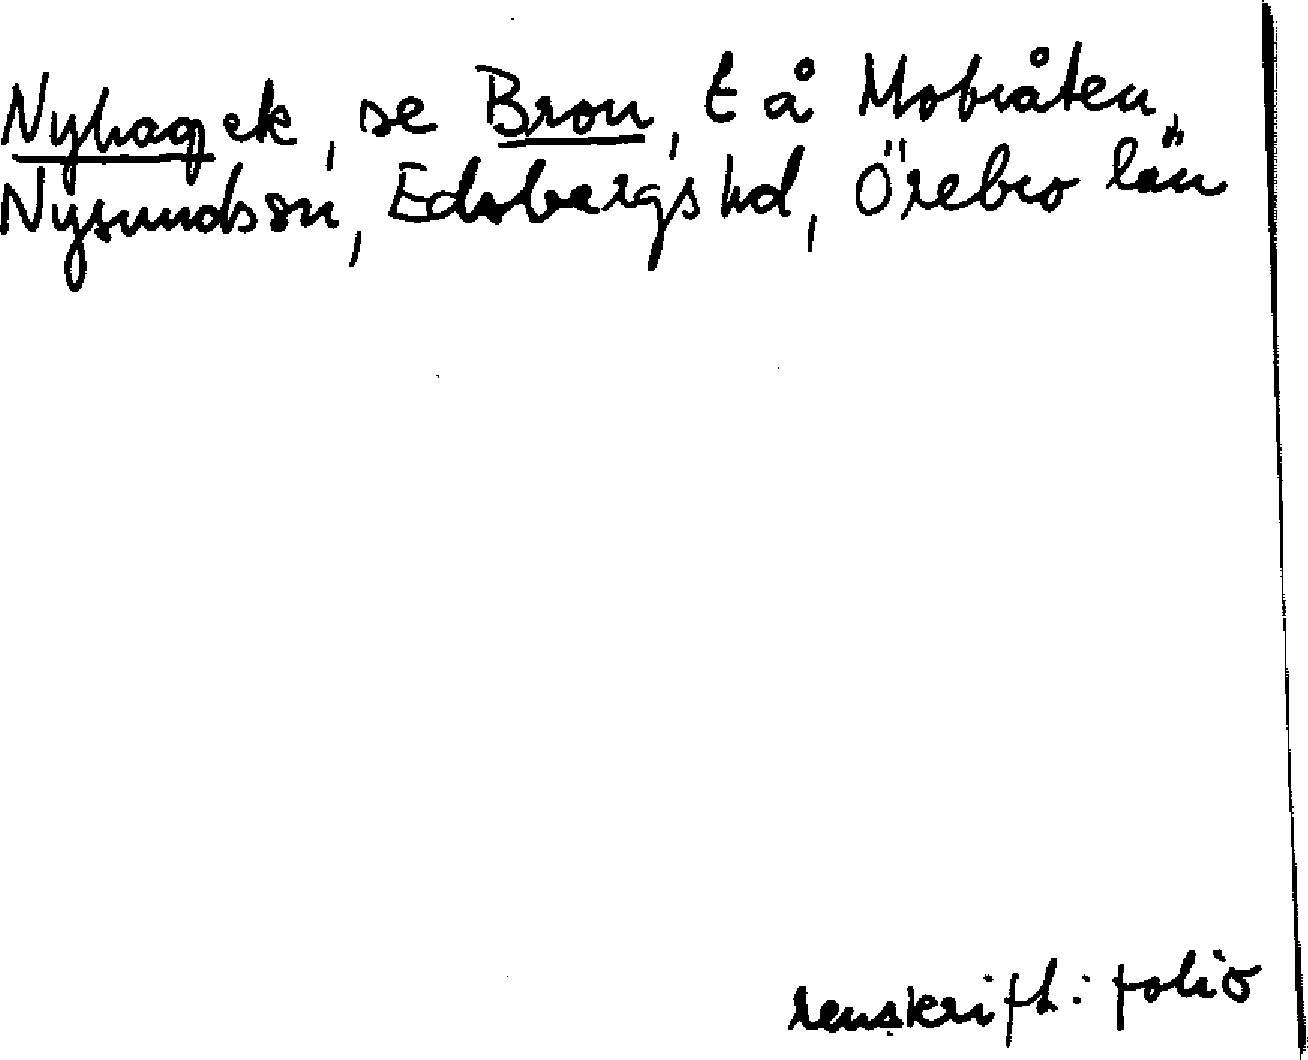 Nyhag ek, se Bron, t å Mobråten,
Nysunds sn, Edsbergs hd, Örebro län
renskrift: folio